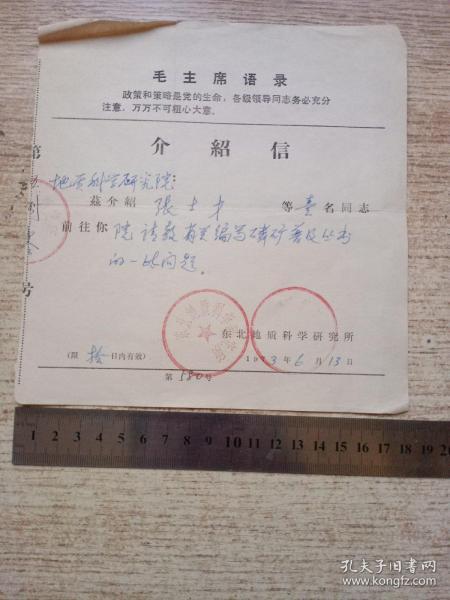 毛主席语录
政策和策略是党的生命，各级领导同志务必充分
注意，万万不可粗心大意。
介紹信
地质科学研究院：
茲介紹 張士才 等壹名同志
前往你院請教有关编写磷矿普及丛书
的一些问题。
东北地质科学研究所
(限拾日内有效) 1973年6月13日
第580号
第
号
1 2 3 4 5 6 7 8 9 10 11 12 13 14 15 16 17 18 19 20
孔夫子旧书网
www.kongfz.com